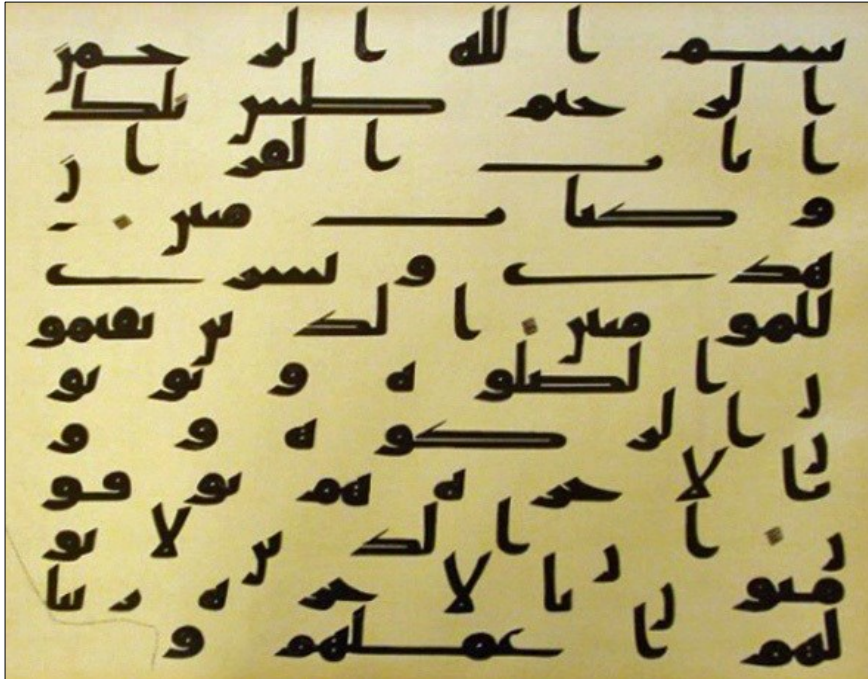 بسم الله الرحمن
الرحيم طس تلك
ايات القران
و كتاب مبين
هدى و بشرى
للمومنين الذين يقيمو
ن الصلوه و يوتو
ن الزكوه و
بالاخره هم يوقنو
ن ان الذين لا يو
منون بالاخره زينا
لهم اعملهم